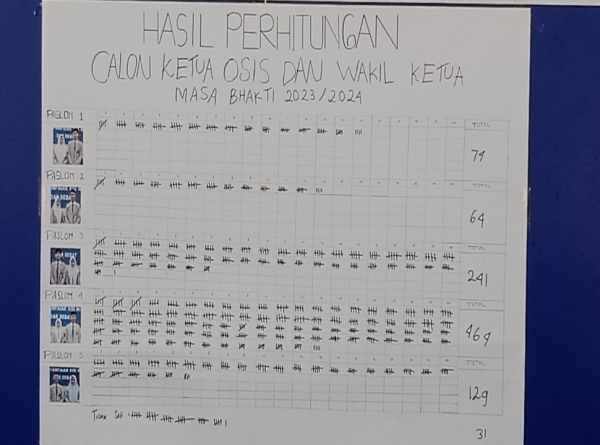 HASIL PERHITUNGAN
CALON KETUA OSIS DAN WAKIL KETUA
MASA BHAKTI 2023/2024
PASLON 1
TOTAL
74
PASLON 2
TOTAL
64
PASLON 3
TOTAL
241
PASLON 4
TOTAL
469
PASLON 5
TOTAL
129
Tidak Sah
31